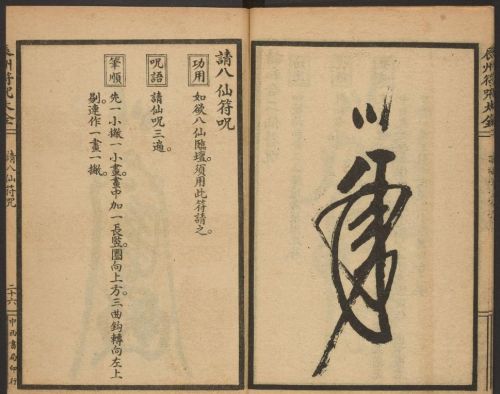 請八仙符咒
功用
如欲八仙臨壇。須用此符請之。
咒語
請仙咒三遍。
筆順
先一小撇。一小畫。畫中加一長豎。圈向上方。三曲鈎轉向左上
剔。連作一畫一撇。
辰州符咒大全
請八仙符咒
二十六
中西書局印行